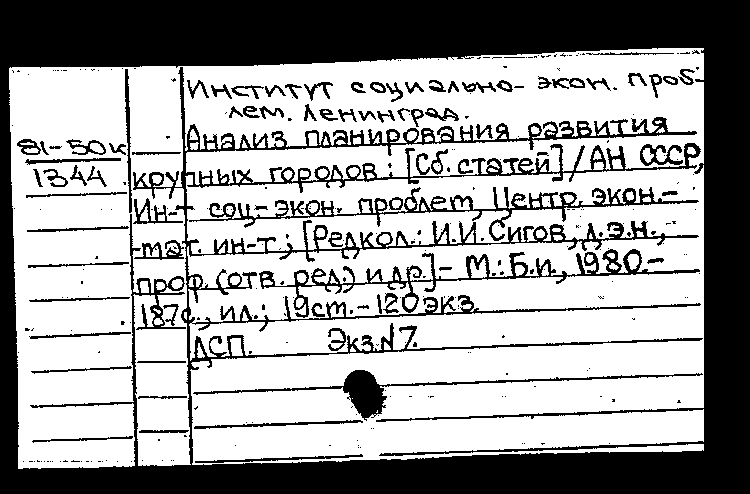 Институт социально- экон. проб-
лем. Ленинград.
Анализ планирования развития
81-50к
1344
крупных городов: [Сб. статей] / АН СССР,
Ин-т соц-экон. проблем, Центр. экон.-
-мат. ин-т; [Редкол.: И.И. Сигов, д.э.н.,
проф. (отв. ред.) и др.] - М.: Б.и., 1980.-
187с., ил.; 19см.-120экз.
ДСП. Экз.N7.